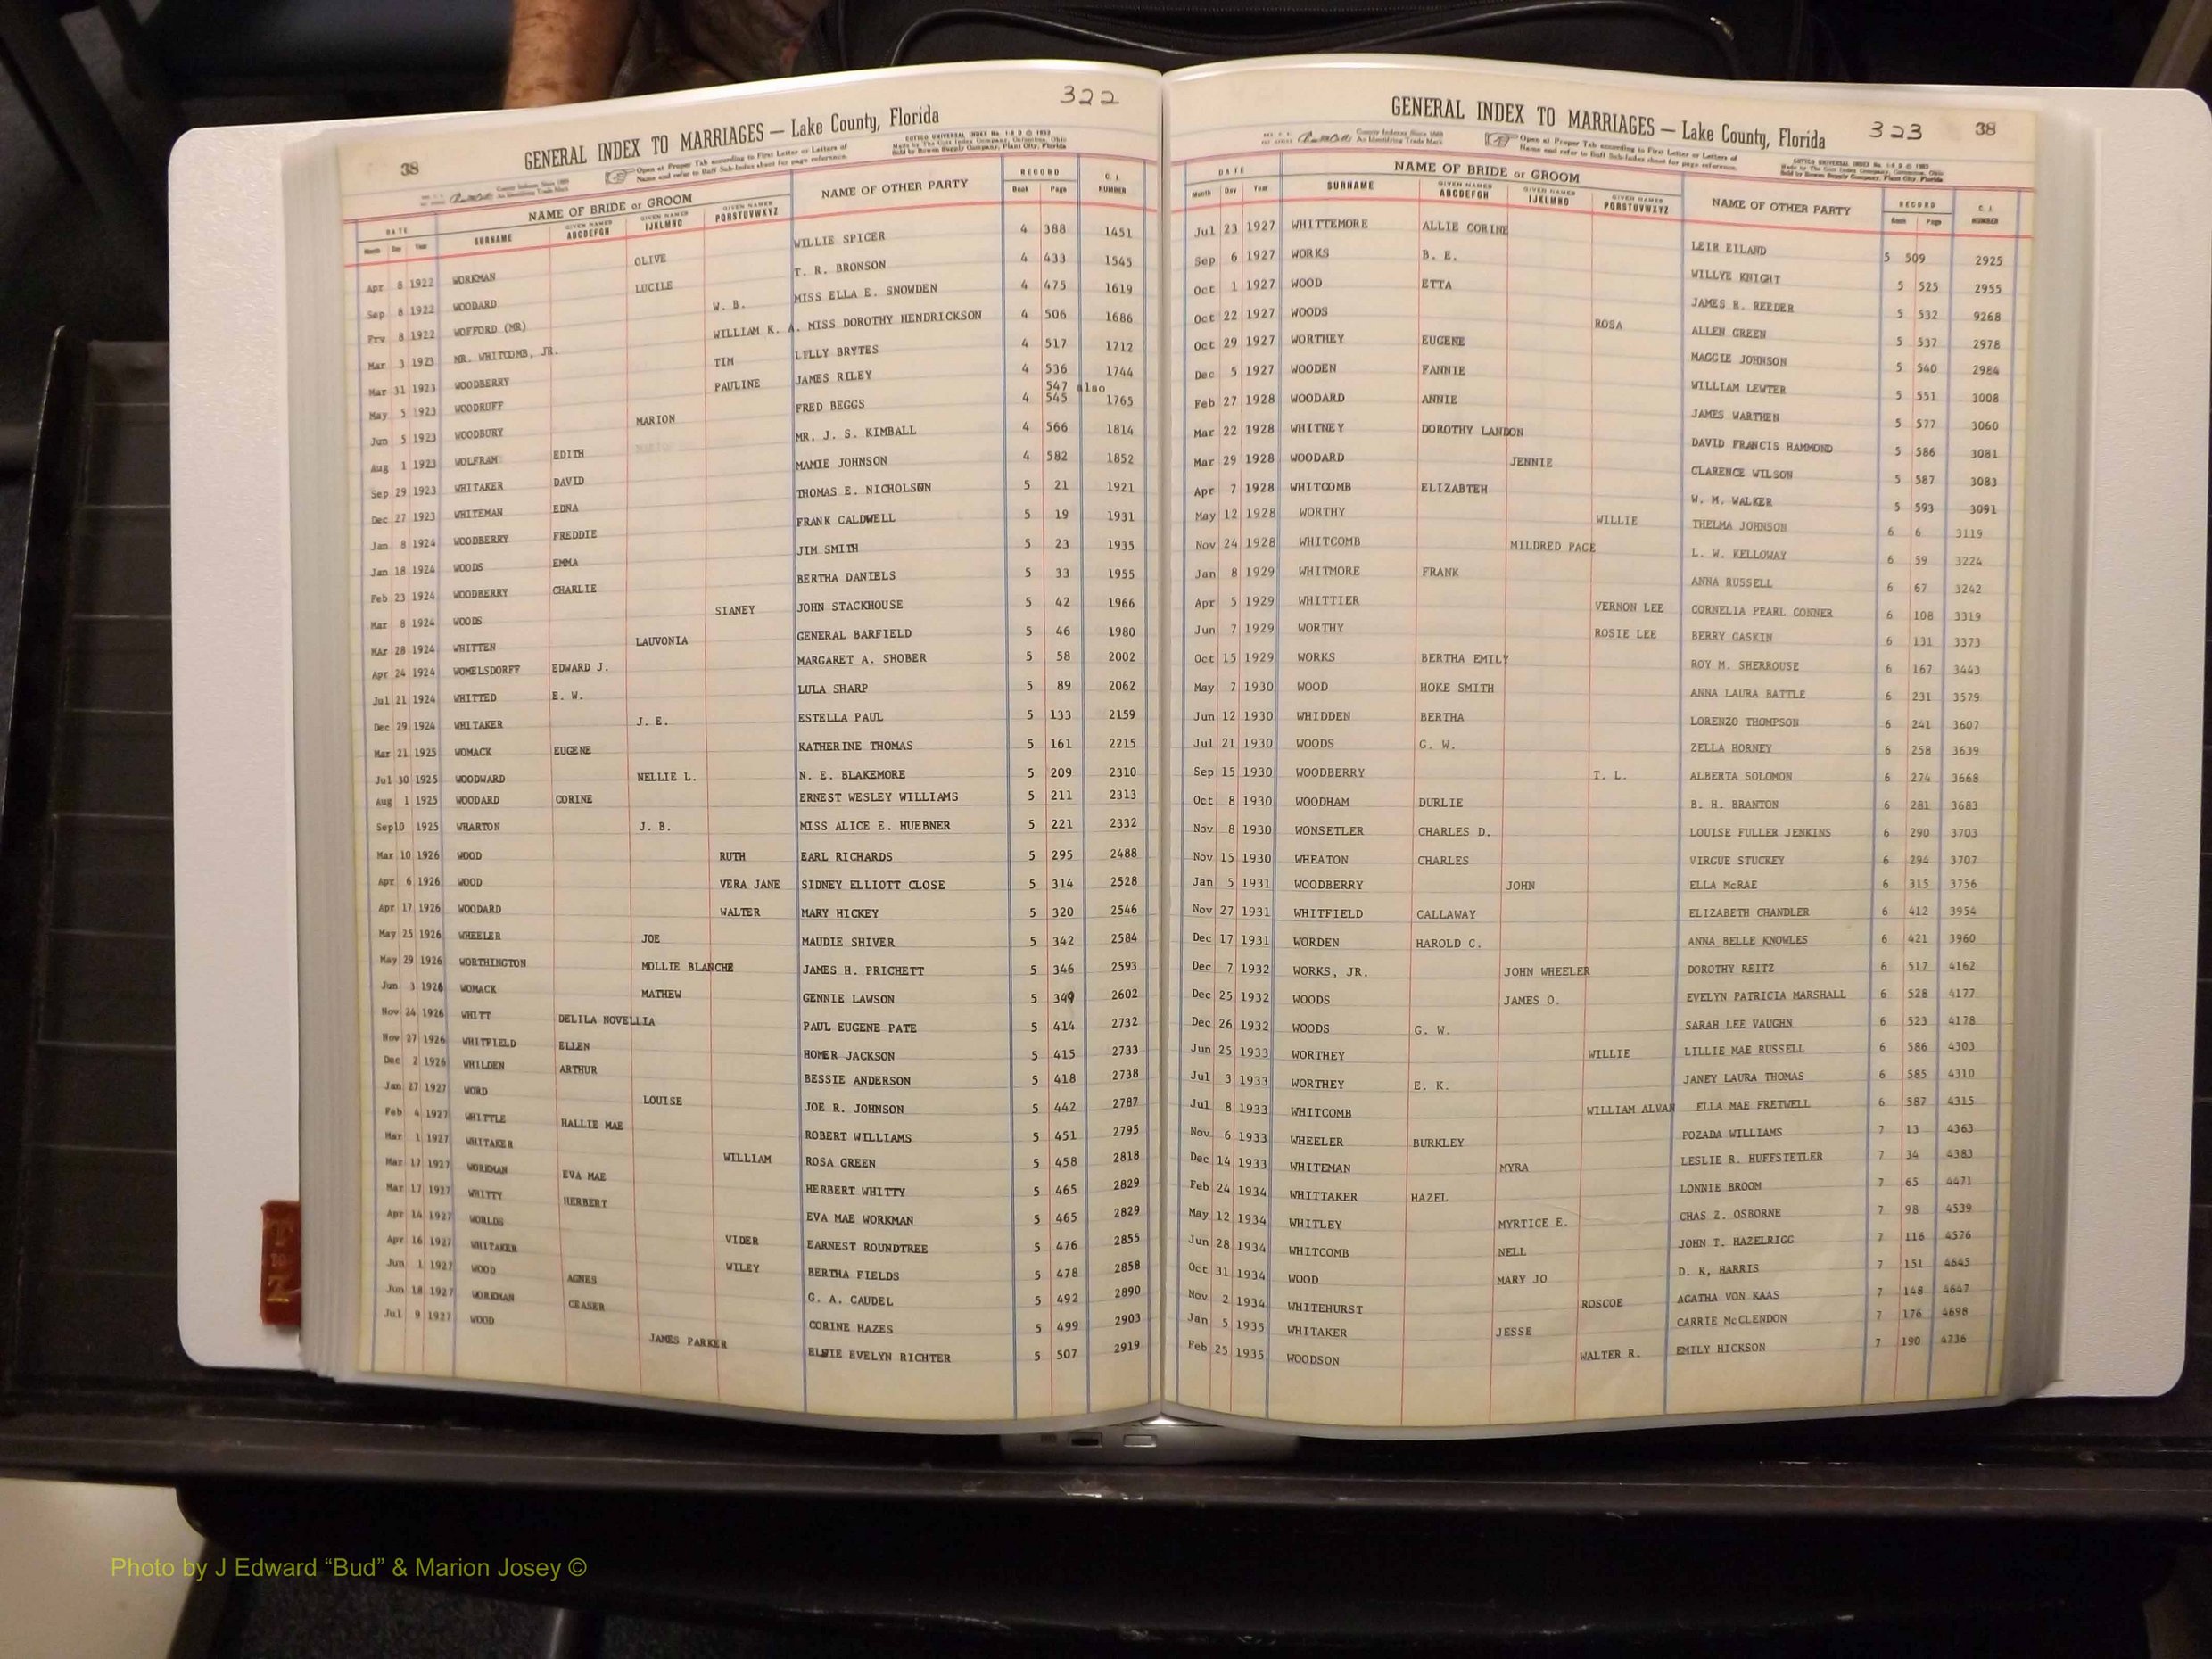 322
38
GENERAL INDEX TO MARRIAGES — Lake County, Florida
COTTCO UNIVERSAL INDEX No. 1-6 B © 1953
Made by The Cott Index Company, Columbus, Ohio
Sold by Bowen Supply Company, Plant City, Florida
County Indexes Since 1888
An Identifying Trade Mark
Open at Proper Tab according to First Letter or Letters of
Name and refer to Buff Sub-Index sheet for page reference.
DATE NAME OF BRIDE or GROOM NAME OF OTHER PARTY RECORD C. I. NUMBER
Month Day Year SURNAME GIVEN NAMES ABCDEFGH GIVEN NAMES IJKLMNO GIVEN NAMES PQRSTUVWXYZ Book Page
Apr 8 1922 WORKMAN OLIVE WILLIE SPICER 4 388 1451
Sep 8 1922 WOODARD LUCILE T. R. BRONSON 4 433 1545
Frv 8 1922 WOFFORD (MR) W. B. MISS ELLA E. SNOWDEN 4 475 1619
Mar 3 1923 MR. WHITCOMB, JR. WILLIAM K. A. MISS DOROTHY HENDRICKSON 4 506 1686
Mar 31 1923 WOODBERRY TIM LILLY BRYTES 4 517 1712
May 5 1923 WOODRUFF PAULINE JAMES RILEY 4 536 1744
547 also
Jun 5 1923 WOODBURY MARION FRED BEGGS 4 545 1765
Aug 1 1923 WOLFRAM EDITH MR. J. S. KIMBALL 4 566 1814
Sep 29 1923 WHITAKER DAVID MAMIE JOHNSON 4 582 1852
Dec 27 1923 WHITEMAN EDNA THOMAS E. NICHOLSON 5 21 1921
Jan 8 1924 WOODBERRY FREDDIE FRANK CALDWELL 5 19 1931
Jan 18 1924 WOODS EMMA JIM SMITH 5 23 1935
Feb 23 1924 WOODBERRY CHARLIE BERTHA DANIELS 5 33 1955
Mar 8 1924 WOODS SIANEY JOHN STACKHOUSE 5 42 1966
MAr 28 1924 WHITTEN LAUVONIA GENERAL BARFIELD 5 46 1980
Apr 24 1924 WOMELSDORFF EDWARD J. MARGARET A. SHOBER 5 58 2002
Jul 21 1924 WHITTED E. W. LULA SHARP 5 89 2062
Dec 29 1924 WHITAKER J. E. ESTELLA PAUL 5 133 2159
Mar 21 1925 WOMACK EUGENE KATHERINE THOMAS 5 161 2215
Jul 30 1925 WOODWARD NELLIE L. N. E. BLAKEMORE 5 209 2310
Aug 1 1925 WOODARD CORINE ERNEST WESLEY WILLIAMS 5 211 2313
Sep10 1925 WHARTON J. B. MISS ALICE E. HUEBNER 5 221 2332
Mar 10 1926 WOOD RUTH EARL RICHARDS 5 295 2488
Apr 6 1926 WOOD VERA JANE SIDNEY ELLIOTT CLOSE 5 314 2528
Apr 17 1926 WOODARD WALTER MARY HICKEY 5 320 2546
May 25 1926 WHEELER JOE MAUDIE SHIVER 5 342 2584
May 29 1926 WORTHINGTON MOLLIE BLANCHE JAMES H. PRICHETT 5 346 2593
Jun 3 1926 WOMACK MATHEW GENNIE LAWSON 5 349 2602
Nov 24 1926 WHITT DELILA NOVELLIA PAUL EUGENE PATE 5 414 2732
Nov 27 1926 WHITFIELD ELLEN HOMER JACKSON 5 415 2733
Dec 2 1926 WHILDEN ARTHUR BESSIE ANDERSON 5 418 2738
Jan 27 1927 WORD LOUISE JOE R. JOHNSON 5 442 2787
Feb 4 1927 WHITTLE HALLIE MAE ROBERT WILLIAMS 5 451 2795
Mar 1 1927 WHITAKER WILLIAM ROSA GREEN 5 458 2818
Mar 17 1927 WORKMAN EVA MAE HERBERT WHITTY 5 465 2829
Mar 17 1927 WHITTY HERBERT EVA MAE WORKMAN 5 465 2829
Apr 14 1927 WORLDS VIDER EARNEST ROUNDTREE 5 476 2855
Apr 16 1927 WHITAKER WILEY BERTHA FIELDS 5 478 2858
Jun 1 1927 WOOD AGNES G. A. CAUDEL 5 492 2890
Jun 18 1927 WORKMAN CEASER CORINE HAZES 5 499 2903
Jul 9 1927 WOOD JAMES PARKER ELSIE EVELYN RICHTER 5 507 2919
GENERAL INDEX TO MARRIAGES — Lake County, Florida
323
38
County Indexes Since 1888
An Identifying Trade Mark
Open at Proper Tab according to First Letter or Letters of
Name and refer to Buff Sub-Index sheet for page reference.
COTTCO UNIVERSAL INDEX No. 1-6 B © 1953
Made by The Cott Index Company, Columbus, Ohio
Sold by Bowen Supply Company, Plant City, Florida
DATE NAME OF BRIDE or GROOM NAME OF OTHER PARTY RECORD C. I. NUMBER
Month Day Year SURNAME GIVEN NAMES ABCDEFGH GIVEN NAMES IJKLMNO GIVEN NAMES PQRSTUVWXYZ Book Page
Jul 23 1927 WHITTEMORE ALLIE CORINE LEIR EILAND 5 509 2925
Sep 6 1927 WORKS B. E. WILLYE KNIGHT 5 525 2955
Oct 1 1927 WOOD ETTA JAMES R. REEDER 5 532 9268
Oct 22 1927 WOODS ROSA ALLEN GREEN 5 537 2978
Oct 29 1927 WORTHEY EUGENE MAGGIE JOHNSON 5 540 2984
Dec 5 1927 WOODEN FANNIE WILLIAM LEWTER 5 551 3008
Feb 27 1928 WOODARD ANNIE JAMES WARTHEN 5 577 3060
Mar 22 1928 WHITNEY DOROTHY LANDON DAVID FRANCIS HAMMOND 5 586 3081
Mar 29 1928 WOODARD JENNIE CLARENCE WILSON 5 587 3083
Apr 7 1928 WHITCOMB ELIZABTEH W. M. WALKER 5 593 3091
May 12 1928 WORTHY WILLIE THELMA JOHNSON 6 6 3119
Nov 24 1928 WHITCOMB MILDRED PAGE L. W. KELLOWAY 6 59 3224
Jan 8 1929 WHITMORE FRANK ANNA RUSSELL 6 67 3242
Apr 5 1929 WHITTIER VERNON LEE CORNELIA PEARL CONNER 6 108 3319
Jun 7 1929 WORTHY ROSIE LEE BERRY GASKIN 6 131 3373
Oct 15 1929 WORKS BERTHA EMILY ROY M. SHERROUSE 6 167 3443
May 7 1930 WOOD HOKE SMITH ANNA LAURA BATTLE 6 231 3579
Jun 12 1930 WHIDDEN BERTHA LORENZO THOMPSON 6 241 3607
Jul 21 1930 WOODS G. W. ZELLA HORNEY 6 258 3639
Sep 15 1930 WOODBERRY T. L. ALBERTA SOLOMON 6 274 3668
Oct 8 1930 WOODHAM DURLIE B. H. BRANTON 6 281 3683
Nov 8 1930 WONSETLER CHARLES D. LOUISE FULLER JENKINS 6 290 3703
Nov 15 1930 WHEATON CHARLES VIRGUE STUCKEY 6 294 3707
Jan 5 1931 WOODBERRY JOHN ELLA McRAE 6 315 3756
Nov 27 1931 WHITFIELD CALLAWAY ELIZABETH CHANDLER 6 412 3954
Dec 17 1931 WORDEN HAROLD C. ANNA BELLE KNOWLES 6 421 3960
Dec 7 1932 WORKS, JR. JOHN WHEELER DOROTHY REITZ 6 517 4162
Dec 25 1932 WOODS JAMES O. EVELYN PATRICIA MARSHALL 6 528 4177
Dec 26 1932 WOODS G. W. SARAH LEE VAUGHN 6 523 4178
Jun 25 1933 WORTHEY WILLIE LILLIE MAE RUSSELL 6 586 4303
Jul 3 1933 WORTHEY E. K. JANEY LAURA THOMAS 6 585 4310
Jul 8 1933 WHITCOMB WILLIAM ALVAN ELLA MAE FRETWELL 6 587 4315
Nov 6 1933 WHEELER BURKLEY POZADA WILLIAMS 7 13 4363
Dec 14 1933 WHITEMAN MYRA LESLIE R. HUFFSTETLER 7 34 4383
Feb 24 1934 WHITTAKER HAZEL LONNIE BROOM 7 65 4471
May 12 1934 WHITLEY MYRTICE E. CHAS Z. OSBORNE 7 98 4539
Jun 28 1934 WHITCOMB NELL JOHN T. HAZELRIGG 7 116 4576
Oct 31 1934 WOOD MARY JO D. K, HARRIS 7 151 4645
Nov 2 1934 WHITEHURST ROSCOE AGATHA VON KAAS 7 148 4647
Jan 5 1935 WHITAKER JESSE CARRIE McCLENDON 7 176 4698
Feb 25 1935 WOODSON WALTER R. EMILY HICKSON 7 190 4736
T
TO
Z
Photo by J Edward “Bud” & Marion Josey ©